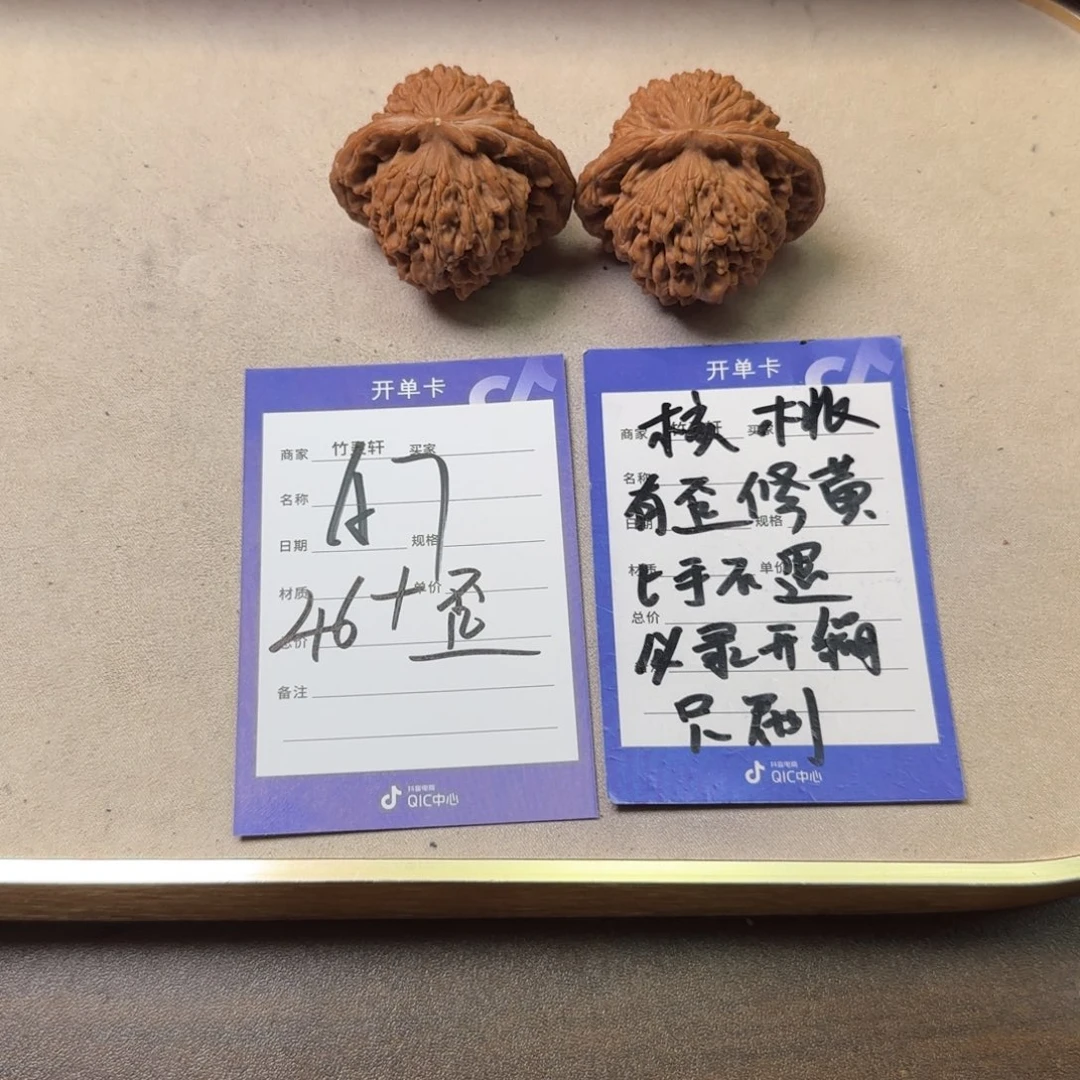 开单卡
商家 竹麦轩 买家
名称
A7
日期 规格
材质 单价
46+歪
总价
备注
抖音电商
QIC中心
开单卡
核桃
商家 轩 买家
名称
有歪修黄
日期 规格
材质 单价
上手不退
总价
只刷
抖音电商
QIC中心